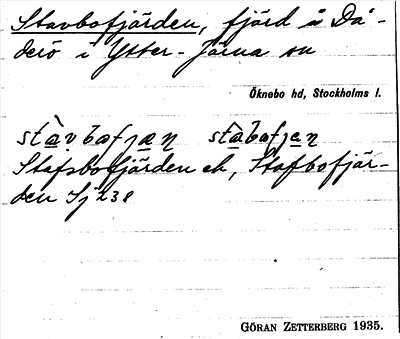 Stavbofjärden, fjärd å Då-
derö i Ytter-Järna sn
Öknebo hd, Stockholms l.
Stafsbofjärden ek, Stafbofjär-
den Sj 238
GÖRAN ZETTERBERG 1935.